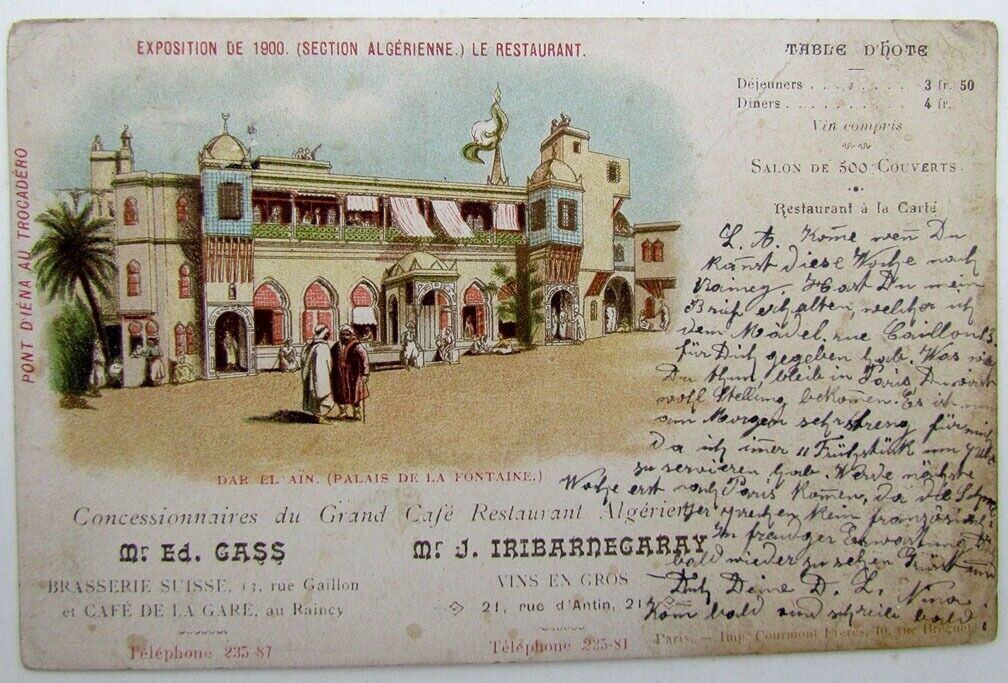 EXPOSITION DE 1900. (SECTION ALGÉRIENNE.) LE RESTAURANT.
PONT D'IÉNA AU TROCADÉRO
TABLE D'HOTE
Déjeuners . . . . . . . . 3 fr. 50
Diners . . . . . . . . . . 4 fr.
Vin compris
SALON DE 500 COUVERTS.
Restaurant à la Carte
L. A. Kome wen Du
kanst diese Woche nach
Raincy. Hast Du mein
Brief erhalten, welcher ich
dem Mädel. rue
für Dich gegeben hab. Was
Du thun, bleib in Paris Du wirst
wohl Stellung bekomen. Es ist
am Morgen sehr streng für mich
da ich imer 11 Frühstück um
zu servieren hab. Werde nächste
Woche erst nach Paris komen, da die
sprechen kein französisch.
In freudiger Erwartung Di
bald wieder zu sehen Grüst
Dich Deine D. L. Nina
Kom bald und schreib bald.
DAR EL AÏN. (PALAIS DE LA FONTAINE.)
Concessionnaires du Grand Café Restaurant Algérien
Mr ED. GASS
BRASSERIE SUISSE, 13, rue Gaillon
et CAFÉ DE LA GARE, au Raincy
Téléphone 235-87
Mr J. IRIBARNEGARAY
VINS EN GROS
21, rue d'Antin, 21
Téléphone 225-81
Paris. — Imp. Courmont Frères, 10, rue Breguet